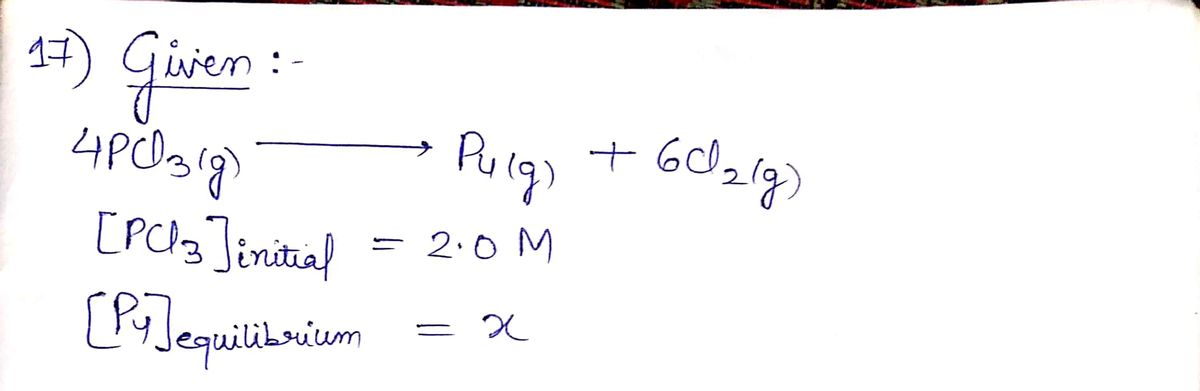 17) Given :-
4PCl₃(g) ⟶ P₄(g) + 6Cl₂(g)
[PCl₃]initial = 2.0 M
[P₄]equilibrium = x